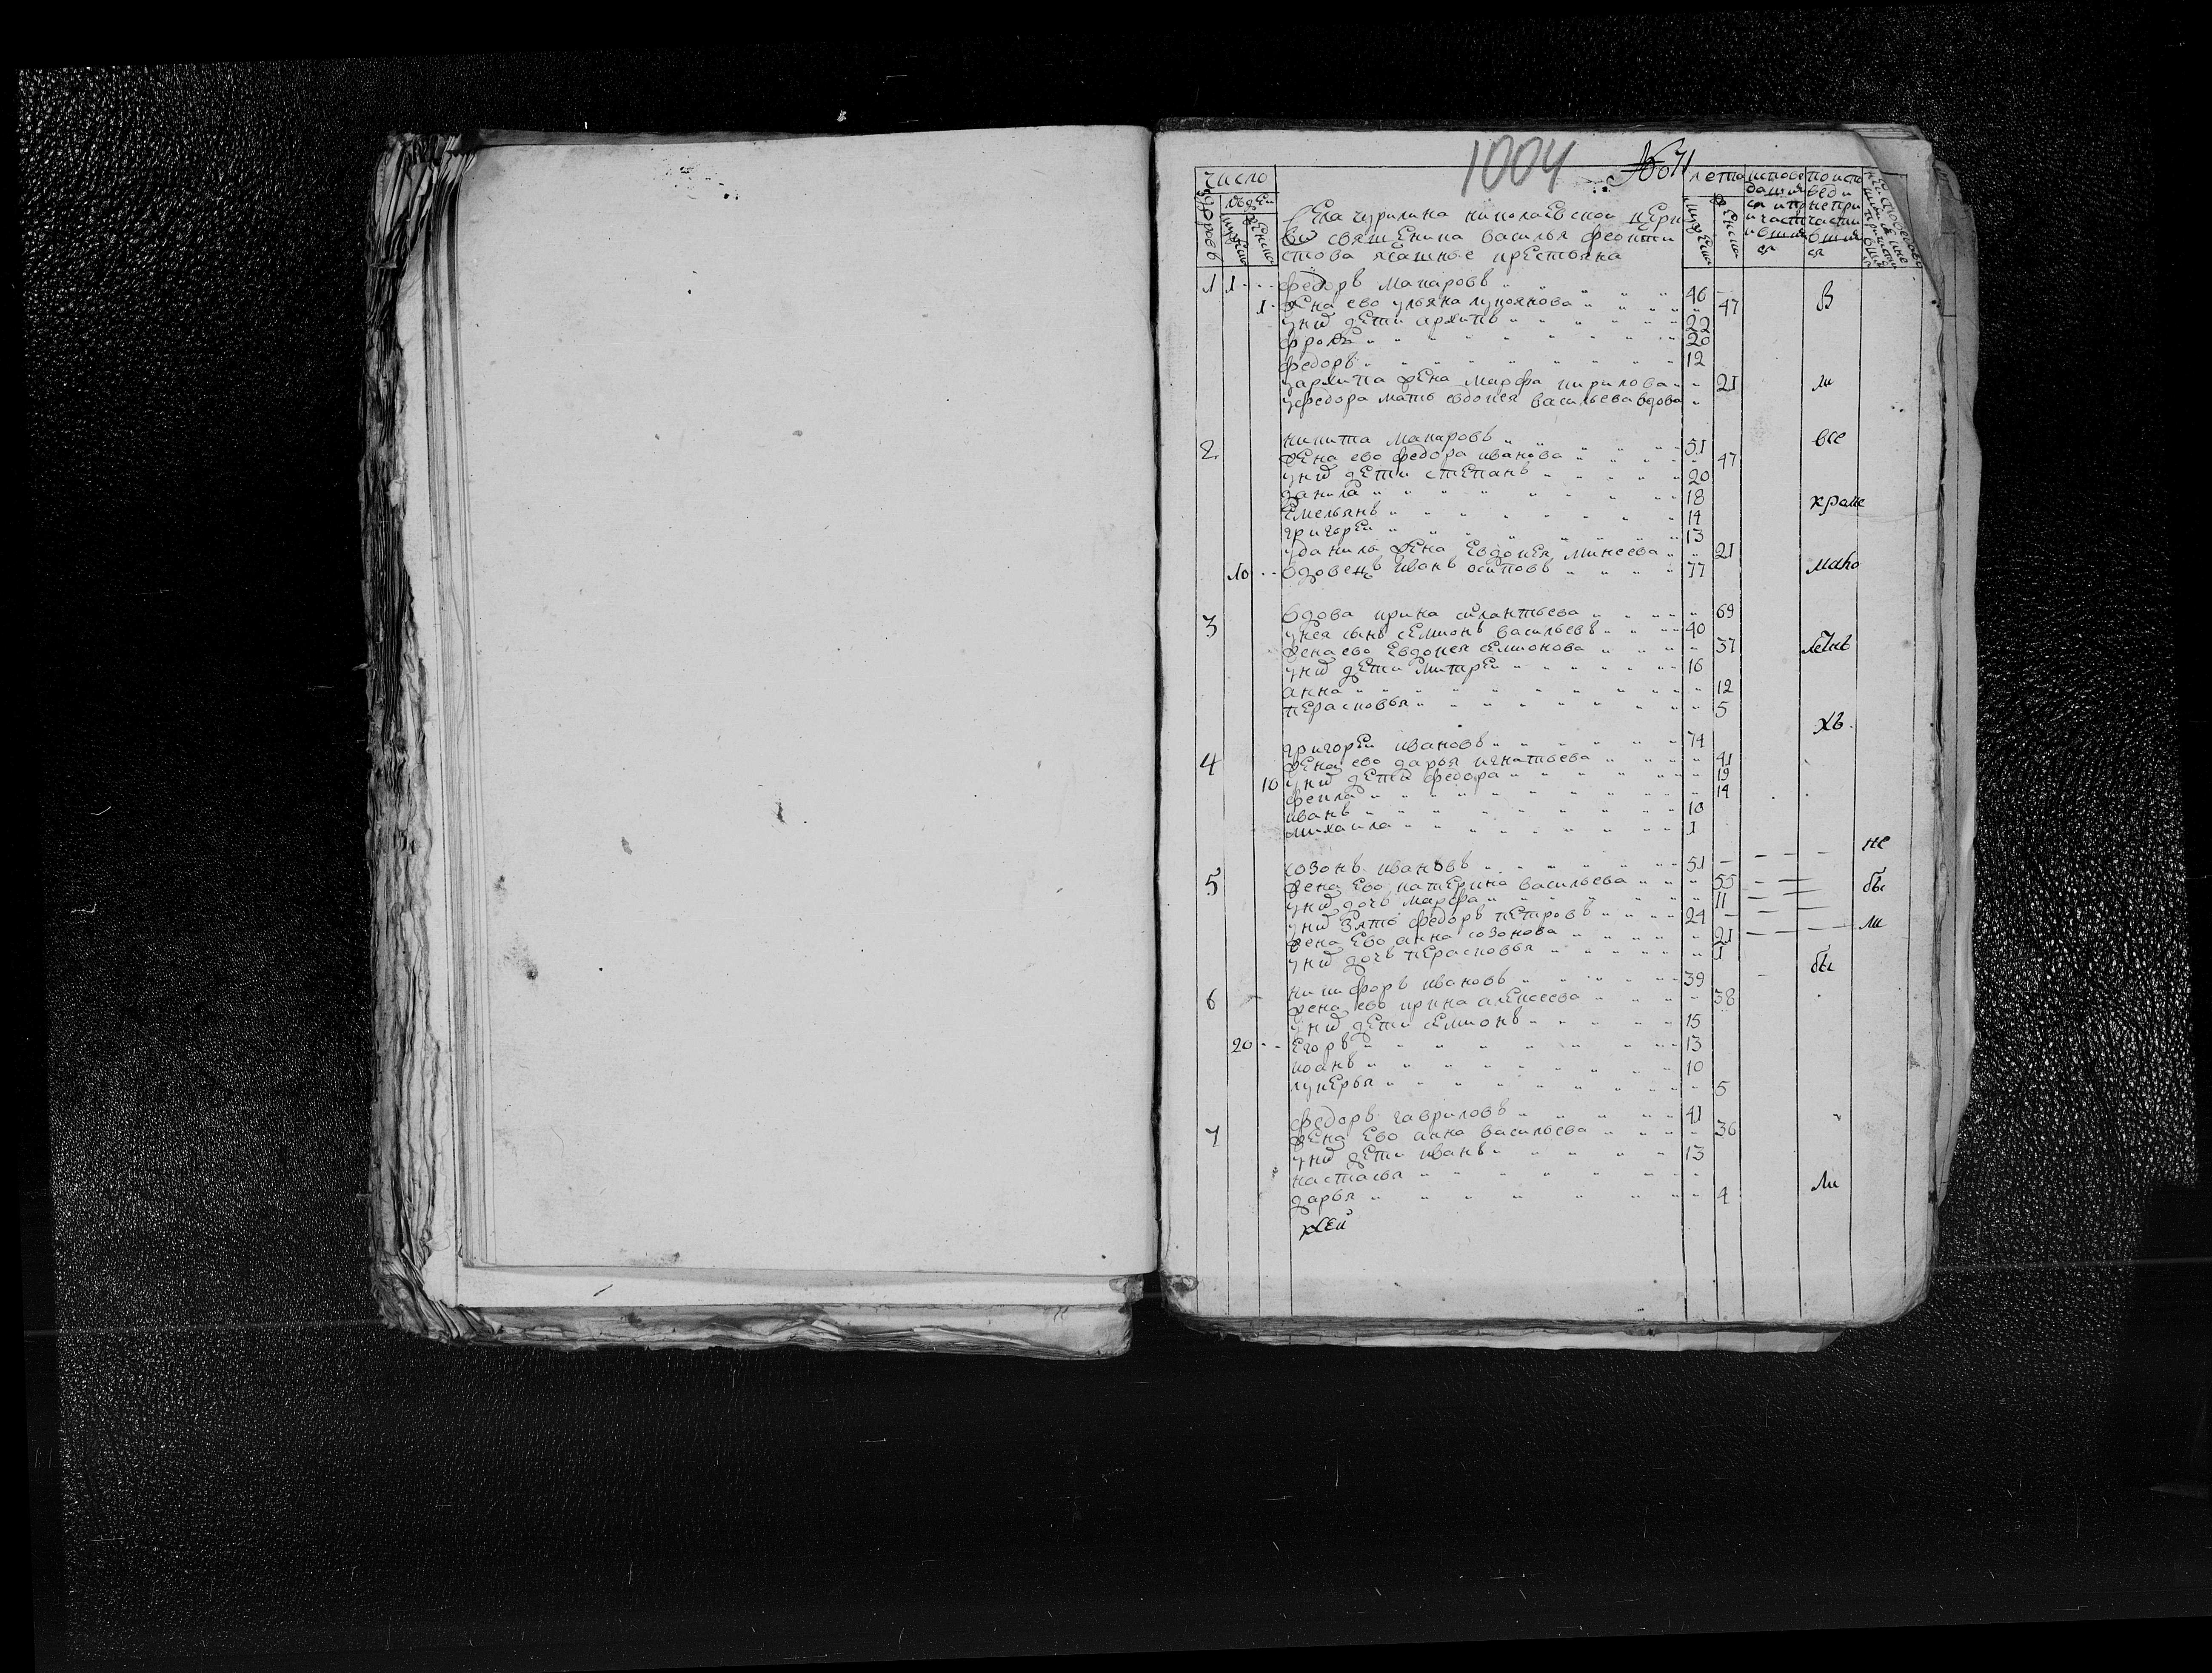 1004
число
дворовъ
людеи
мужеска
женска
села чурилина николаевскои церк
ви священика василья феокти
стова ясашные крестьяна
лета
мужеска
женска
испове
дашия
ся и пр
ичасти
вшия
ся
по испо
веди
не при
части
вшия
ся
1 1 федоръ макаровъ 46 в
1 жена ево ульяна лукоянова 47
у них дети архипъ 22
фролъ 20
федоръ 12
у архипа жена марфа кирилова 21 ли
у федора мать евдокея васильева вдова
2 никита макаровъ 51 все
жена ево федора иванова 47
у них дети степанъ 20
данила 18
емельянъ 14 храме
григореи 13
у данила жена евдокея минеева 21
10 вдовецъ иванъ осиповъ 77
3 вдова ирина силантьева 69
у нея сынъ семионъ васильевъ 40
жена ево евдокея семионова 37
у них дети митреи 16
анна 12
перасковья 5
4 григореи ивановъ 74
жена ево дарья игнатьева 41
10 у них дети федора 19
фекла 14
иванъ 10
михаила 1
не
5 созонъ ивановъ 51
жена ево катерина васильева 55 бы
у них дочь марфа 11
у них зять федоръ петровъ 24 ли
жена ево анна созонова 21
у них дочь перасковья 1
бы
6 никифоръ ивановъ 39
жена ево ирина алексеева 38
у них дети семионъ 15
20 егоръ 13
иоанъ 10
лукерья 5
7 федоръ гавриловъ 41
жена ево анна васильева 36
у них дети иванъ 13
настасья
дарья 4 ли